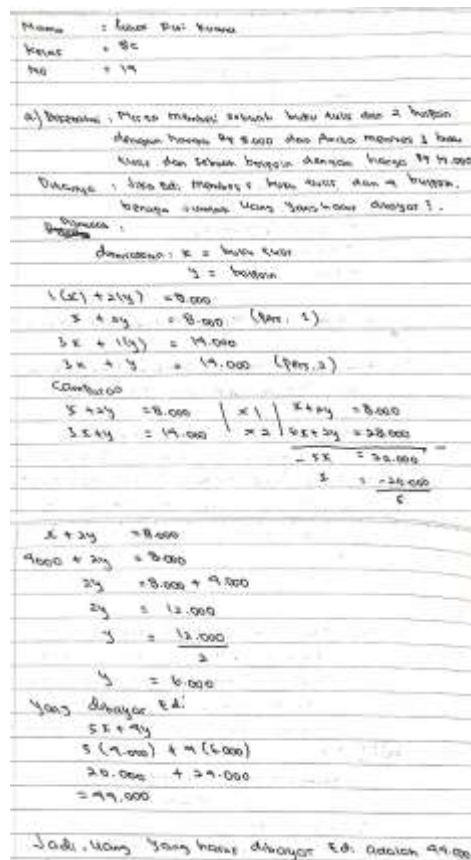 Nama :
Kelas : 8c
No : 19
a) Diketahui : membeli sebuah buku tulis dan 2 bolpoin
dengan harga Rp 8.000 dan Anisa membeli 3 buku
tulis dan sebuah bolpoin dengan harga Rp 14.000
Ditanya : Jika Edi membeli 5 buku tulis dan 4 bolpoin,
berapa jumlah uang yang harus dibayar ?
: x = buku tulis
y = bolpoin
1(x) + 2(y) = 8.000
x + 2y = 8.000 (pers. 1)
3x + 1(y) = 14.000
3x + y = 14.000 (pers. 2)
x + 2y = 8.000 | x 1 | x + 2y = 8.000
3x + y = 14.000 | x 2 | 6x + 2y = 28.000
- 5x = 20.000
x = -20.000
5
x + 2y = 8.000
4000 + 2y = 8.000
2y = 8.000 + 4.000
2y = 12.000
y = 12.000
2
y = 6.000
Yang dibayar Edi
5x + 4y
5 (4.000) + 4 (6.000)
20.000 + 24.000
= 44.000
Jadi, uang yang harus dibayar Edi adalah 44.000